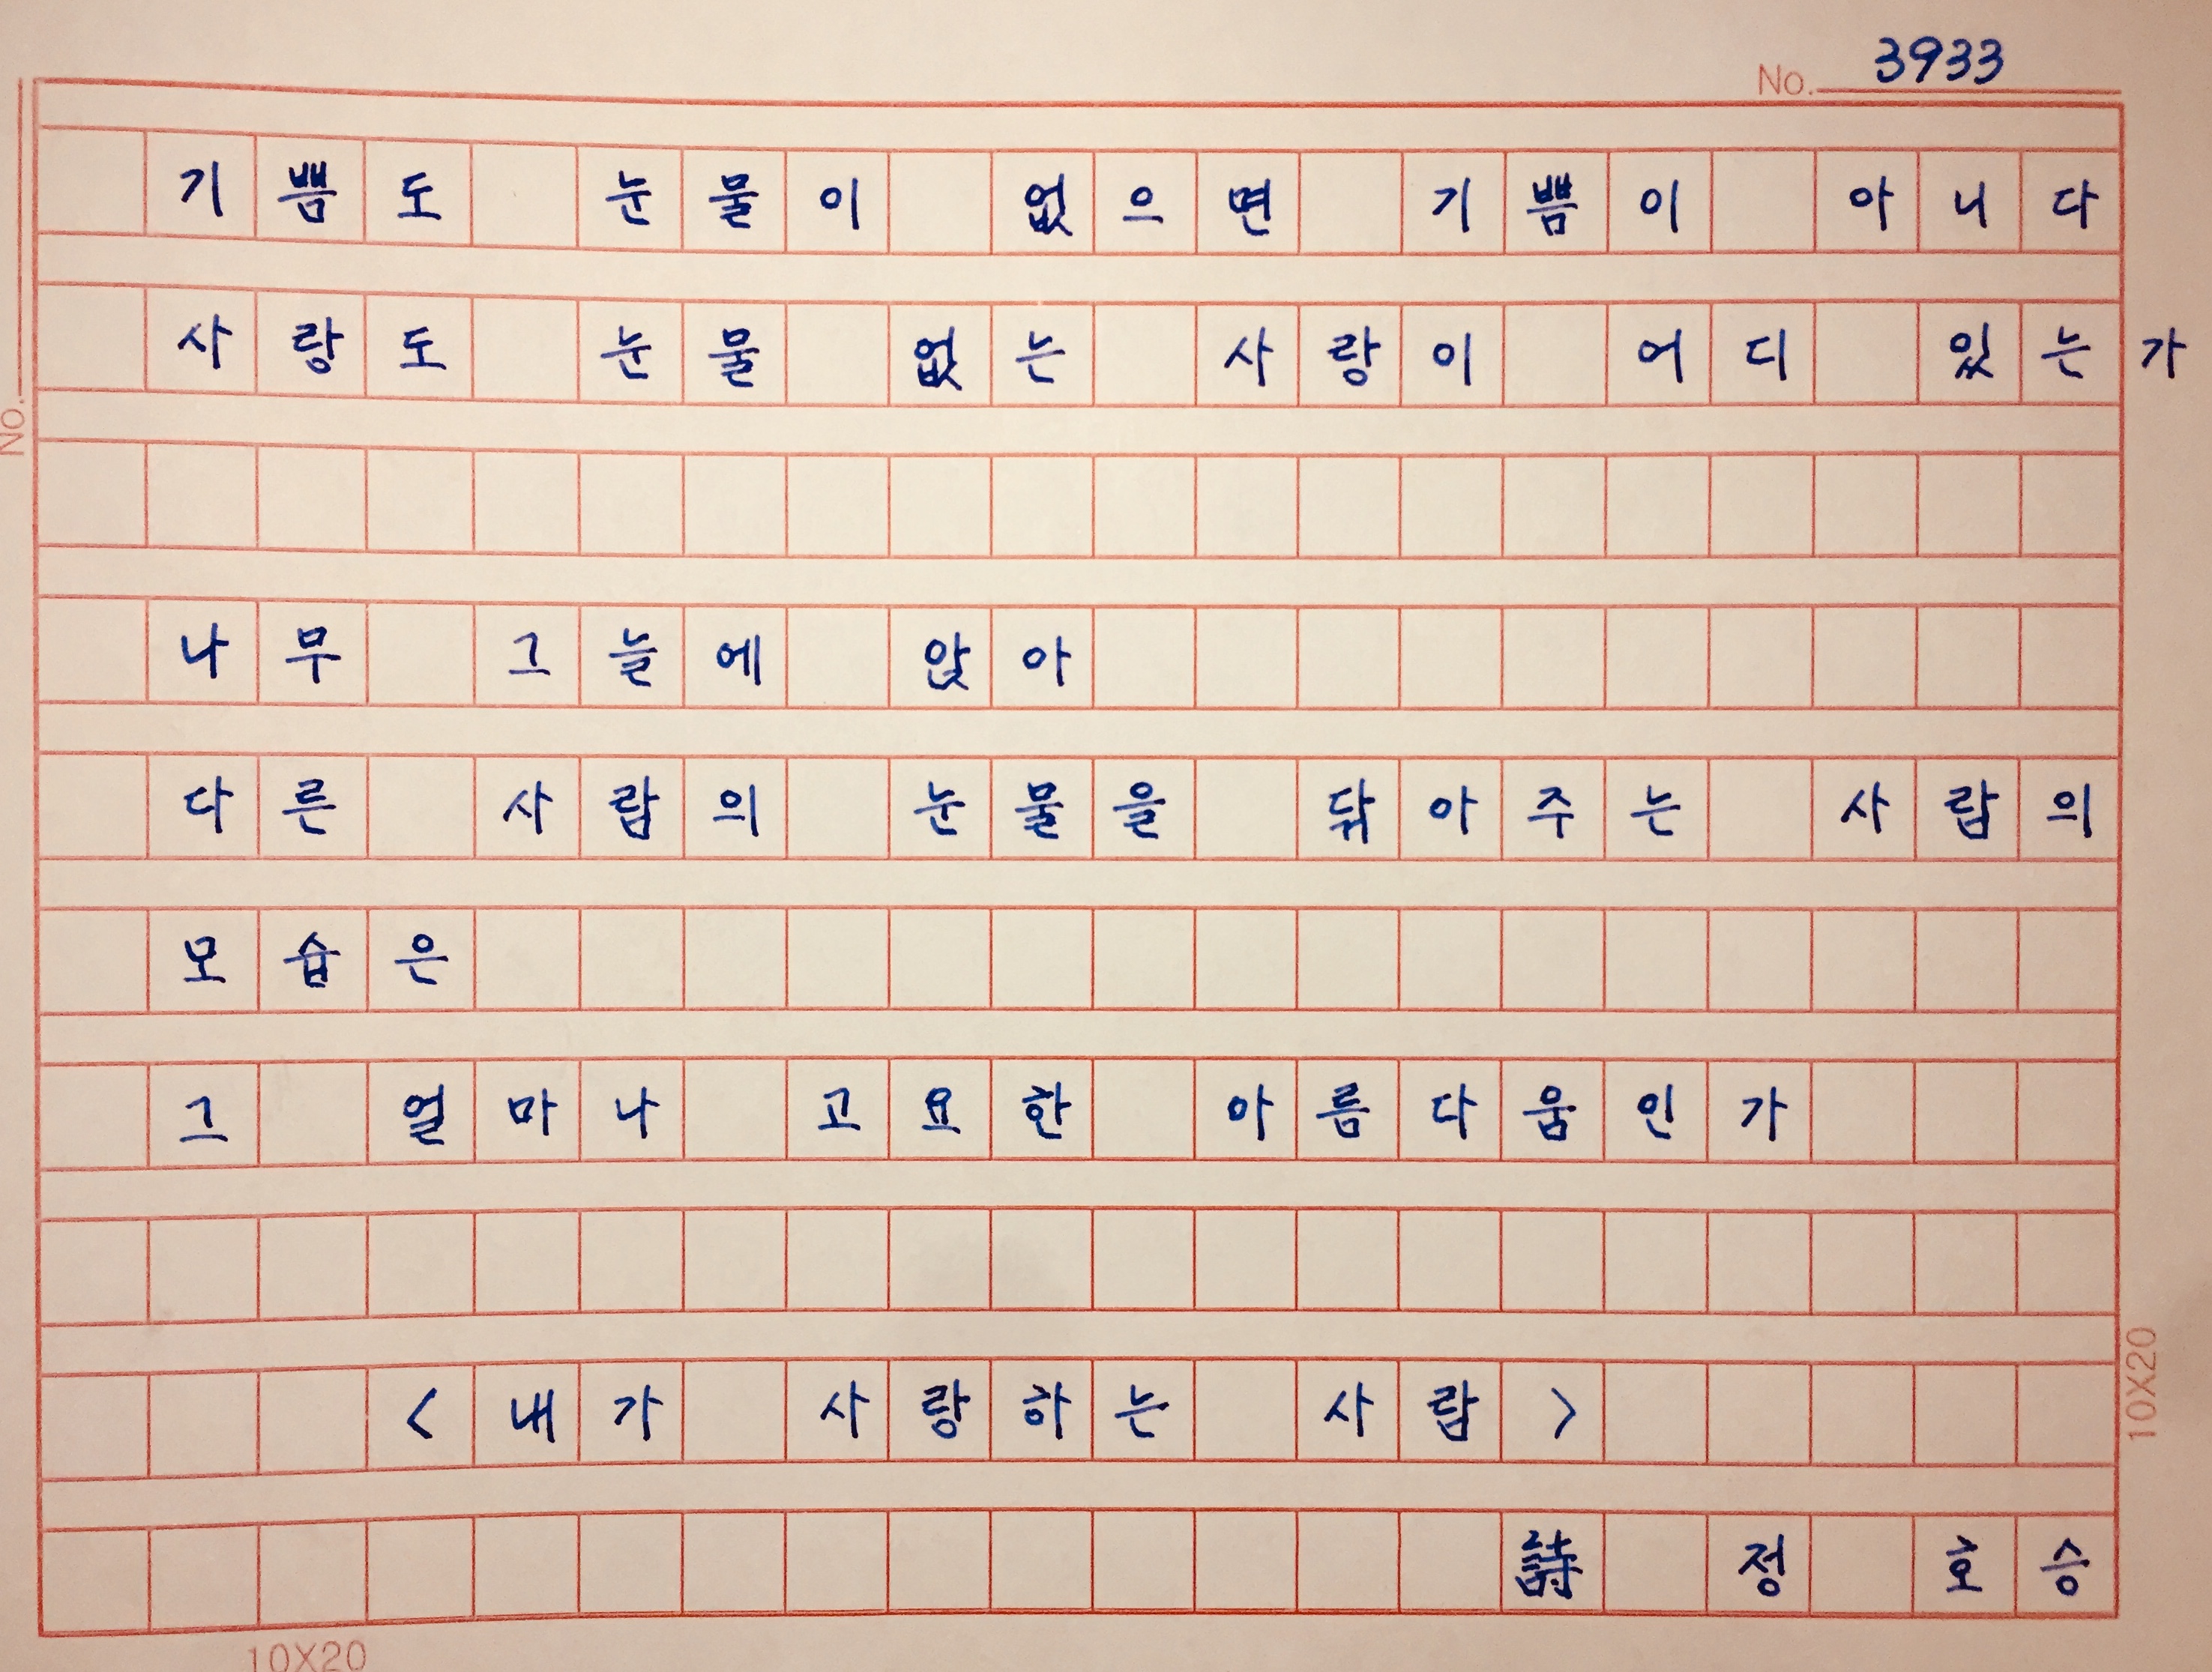 No. 3933
기쁨도 눈물이 없으면 기쁨이 아니다
사랑도 눈물 없는 사랑이 어디 있는가
No.
나무 그늘에 앉아
다른 사람의 눈물을 닦아주는 사람의
모습은
그 얼마나 고요한 아름다움인가
<내가 사랑하는 사람>
10X20
詩 정 호승
10X20